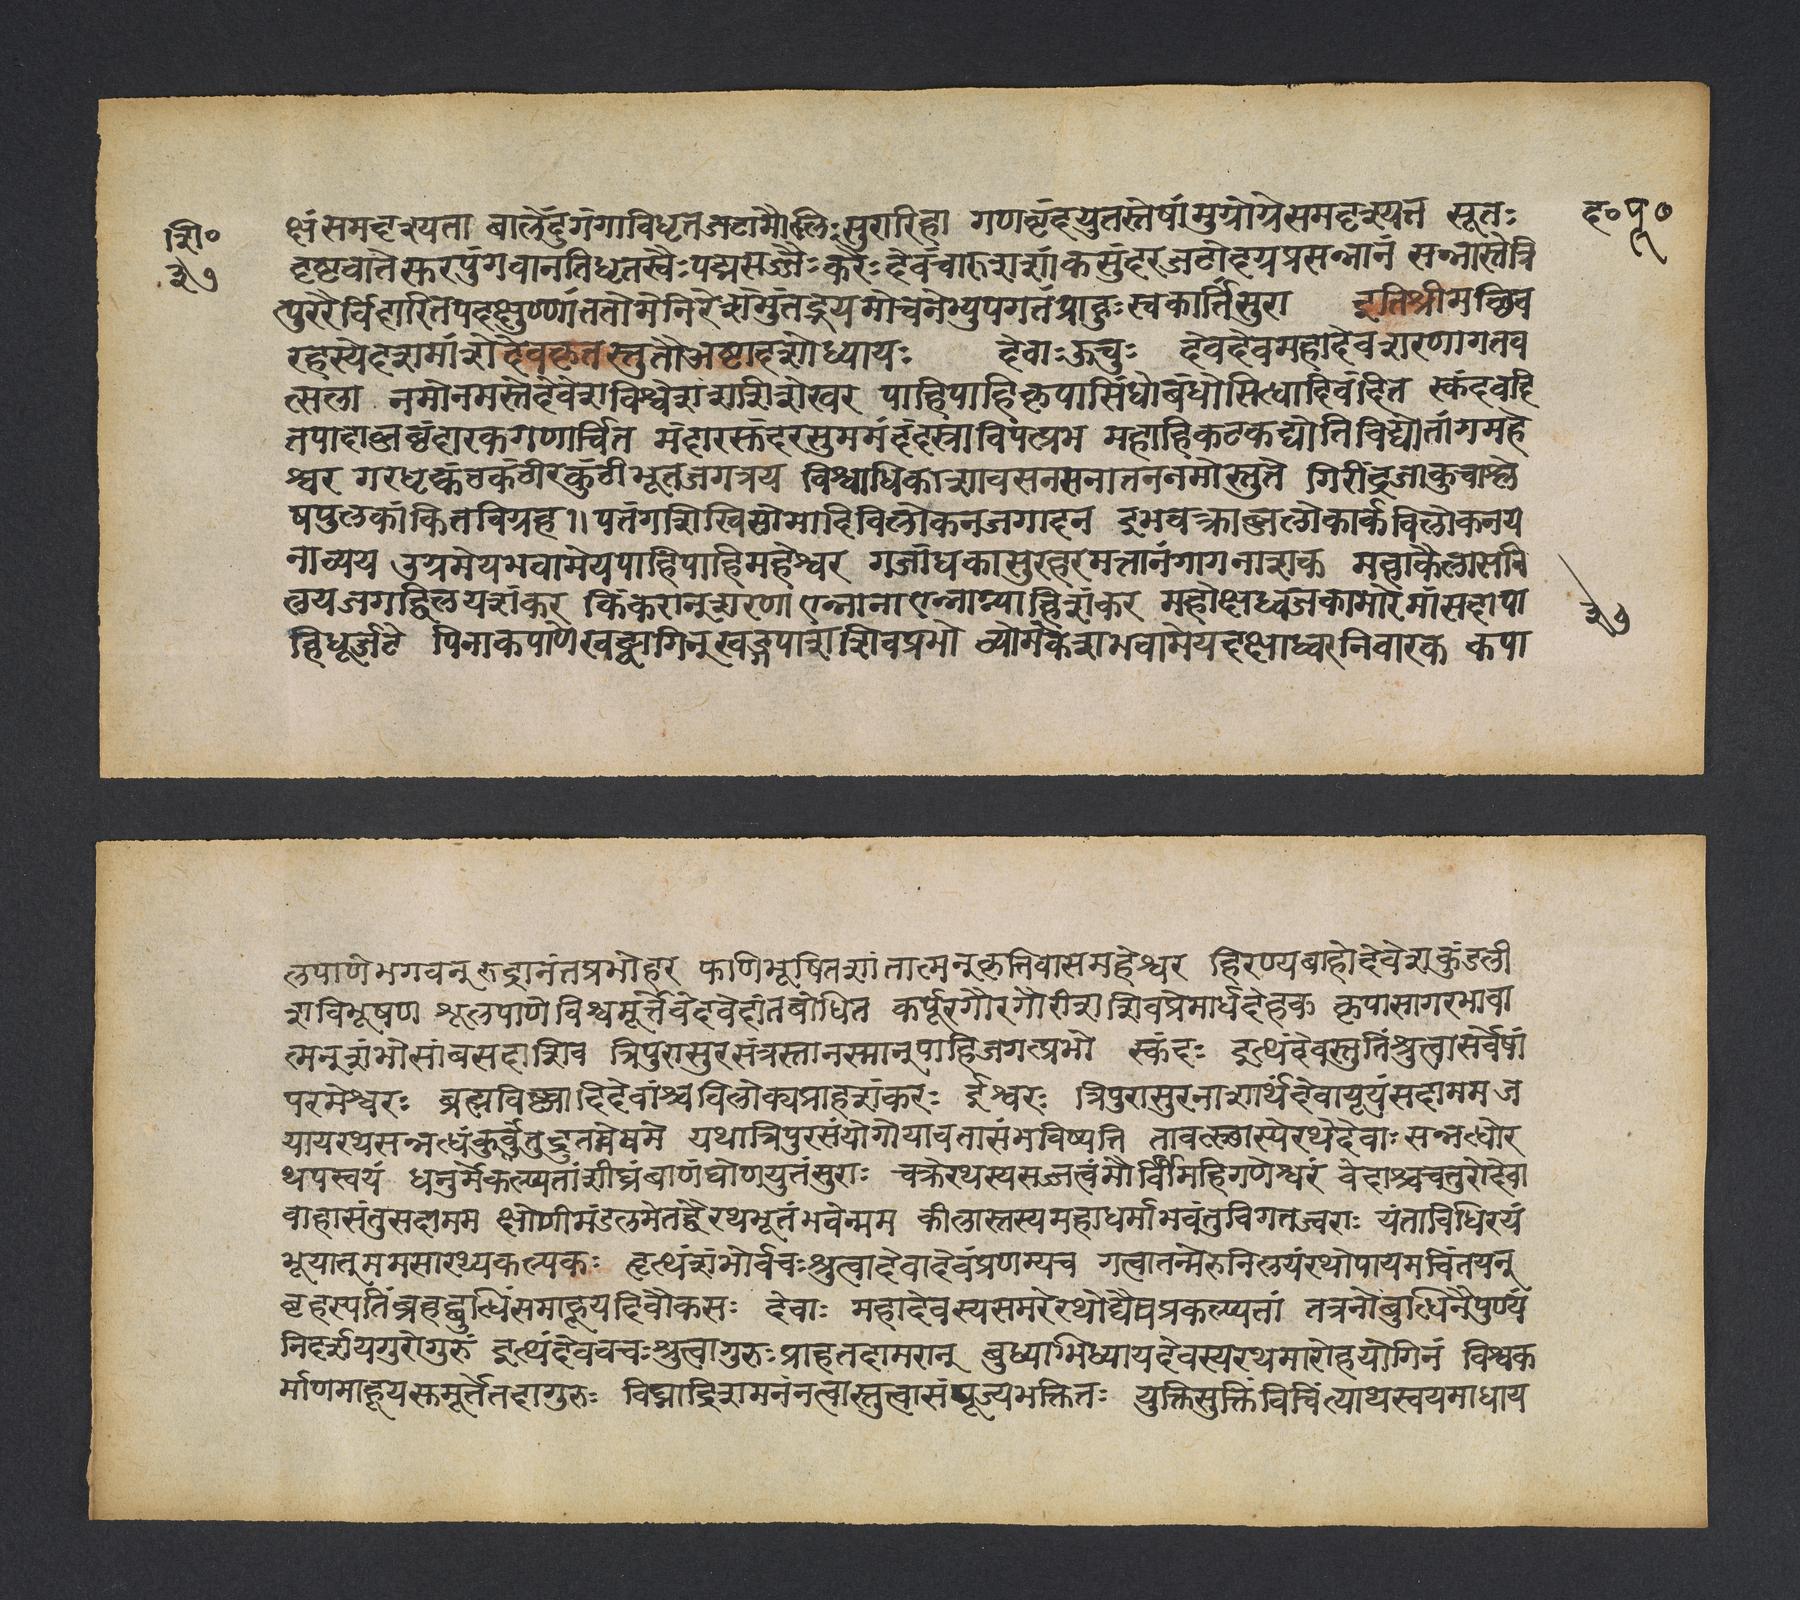 शि॰
३७
द॰ पू ७
क्षं समदृश्यता बालेंदुगंगाविधृतजटामौलिः सुरारिहा गणवृंदयुतस्तेषामुग्रोग्रेसमदृश्यत सूतः
दृष्टवातेस्करपुंगवानतिधृतस्वैः पद्मसञ्जैः करैः देवंचारुशशांकसुंदरजटोदयप्रसन्नाननं सन्नास्तेत्रि
त्पुररैर्विदारितपदक्षुण्णांततोमेनिरे शंभुंतद्भयमोचनेभ्युपगतं प्राहुः स्वकार्तिंसुरा इतिश्रीमच्छिव
रहस्येहरामांशेदेवकृतस्तुतौअष्टादशोध्यायः देवाः ऊचुः देवदेवमहादेवशरणागतव
त्सला नमोनमस्तेदेवेशविश्वेशशशिशेखर पाहिपाहिकृपासिंधोबंधोसित्वादिवंदित स्कंदवदि
तपादाब्जवृंदारकगणार्चित मंदारस्कंदरसुममंदहस्वाविपत्प्रभ महाहिकटकद्योतिविद्योतांगमहे
श्वर गरधृक्कंठकंठीरकुंठीभूतजगत्रय विश्वाधिकाशावसनसनातननमोस्तुते गिरींद्रजाकुचाश्ले
षपुलकांकितविग्रह॥ पतंगशिखिसोमादिविलोकनजगादन इभवक्त्राब्जलोकार्कविलोकनय
नाव्यय उग्रमेयभवामेयपाहिपाहिमहेश्वर गजांधकासुरहरमत्तानंगागनाशक महाकैलासनि
लयजगद्विलयशंकर किंकरानुशरणापन्नानापन्नान्पाहिशंकर महोक्षध्वजकामारेमांसदापा
हिधूर्जटे पिनाकपाणेखट्वांगिन् खड्गपाशशिवप्रभो व्योमकेशभवामेयदक्षाध्वरनिवारक कपा
३७
लपाणेभगवन् रुद्रानंतप्रभोहर फणिभूषितशांतात्मन् कृत्तिवासमहेश्वर हिरण्यबाहोदेवेशकुंडली
शविभूषण शूलपाणेविश्वमूर्त्तेवेदवेदांतबोधित कर्पूरगौरगौरीशशिवप्रेमार्धदेहक कृपासागरभावा
त्मन् शंभोसांबसदाशिव त्रिपुरासुरसंत्रस्तानस्मान् पाहिजगत्प्रभो स्कंदः इत्थंदेवस्तुतिंश्रुत्वासर्वेषां
परमेश्वरः ब्रह्मविष्ण्वादिदेवांश्चविलोक्यप्राहशंकरः ईश्वरः त्रिपुरासुरनाशार्थंदेवायूयंसदाममज
यायरथसन्नद्धंकुर्वंतुद्रुतमेषमे यथात्रिपुरसंयोगोयावतासंभविष्यति तावत्स्छास्येरथेदेवाः सन्नद्धोर
थपस्वयं धनुर्मेकल्प्यतांशीघ्रंबाणंघोणयुतंसुराः चक्रेरथस्यसज्जत्वंमौर्वीमहिगणेश्वरं वेदाश्चचतुरोदेवा
वाहासंतुसदामम क्षोणीमंडलमेतद्वैरथभूतंभवेन्मम कीलास्तस्यमहाधर्माभवंतुविगतज्वराः यंताविधिरयं
भूयात्ममसारथ्यकल्पकः इत्थंशंभोर्वचः श्रुत्वादेवादेवंप्रणम्यच गत्वातन्मेरुनिलयंरथोपायमचिंतयन्
बृहस्पतिंब्रहद्बुद्धिंसमाहूयदिवौकसः देवाः महादेवस्यसमरेरथोद्यैवप्रकल्प्यतां तत्रनोबुद्धिनैपुण्यं
निदर्शयगुरोगुरुं इत्थंदेववचः श्रुत्वागुरुः प्राहतदामरान् बुध्याभिध्यायदेवस्यरथमारोहयोगिनं विश्वक
र्माणमाहूयस्तमूर्तैतदागुरुः विघ्नाद्रिशमनंनत्वास्तुत्वासंपूज्यभक्तितः युक्तिसुक्तिंविचिंत्याथस्वयमाधाय